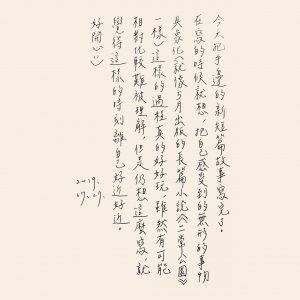 今天把手邊的新短篇故事寫完了。
在寫的時候就想，把自己感受到的無形的事物
具象化（就像5月出版的長篇小說《二常公園》
一樣）這樣的過程真的好好玩，雖然有可能
相對比較難被理解，但是仍想這麼寫，就
覺得這樣的時刻離自己好近好近。
好開心：）
2019.
07.29.